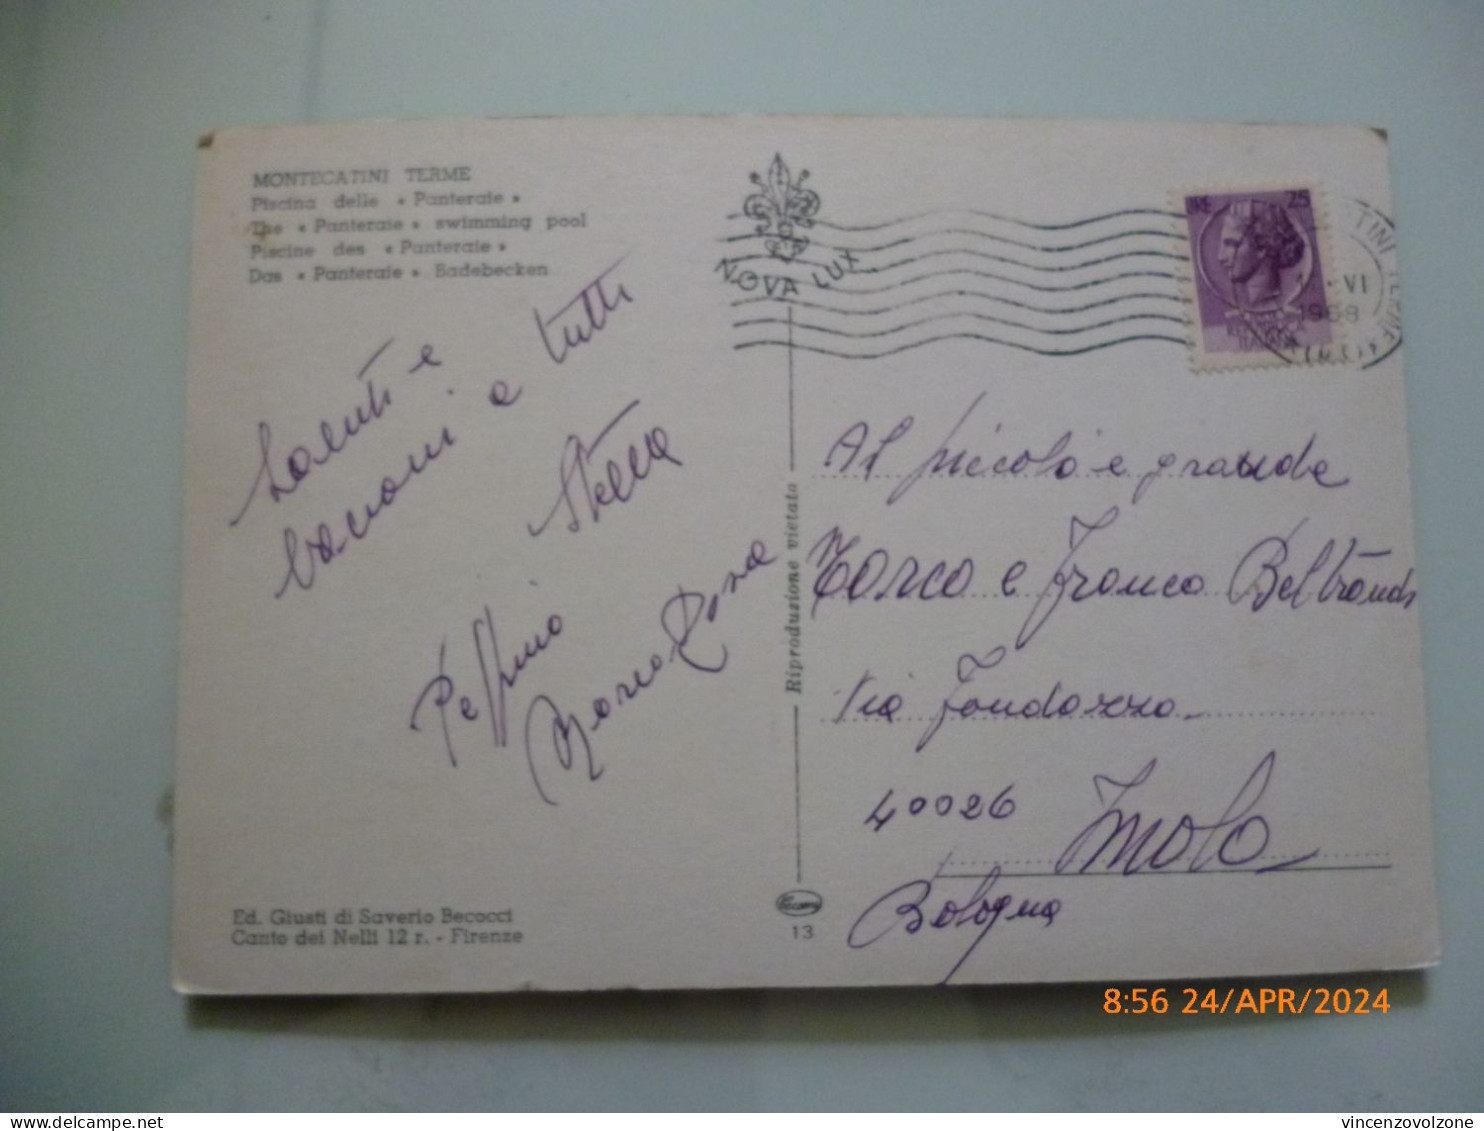 MONTECATINI TERME
Piscina delle « Panteraie »
The « Panteraie » swimming pool
Piscine des « Panteraie »
Das « Panteraie » Badebecken
NOVA LUX
LIRE 25
TINI TERME
VI
1968
(PT)
Saluti e
bacioni a tutti
Stella
Peppino
Maria Rosa
Riproduzione vietata
Al piccolo e grande
Marco e Franco Beltrandi
Via Fondazza
40026 Imola
Bologna
Ed. Giusti di Saverio Becocci
Canto dei Nelli 12 r. - Firenze
13
8:56 24/APR/2024
delcampe.net
vincenzovolzone